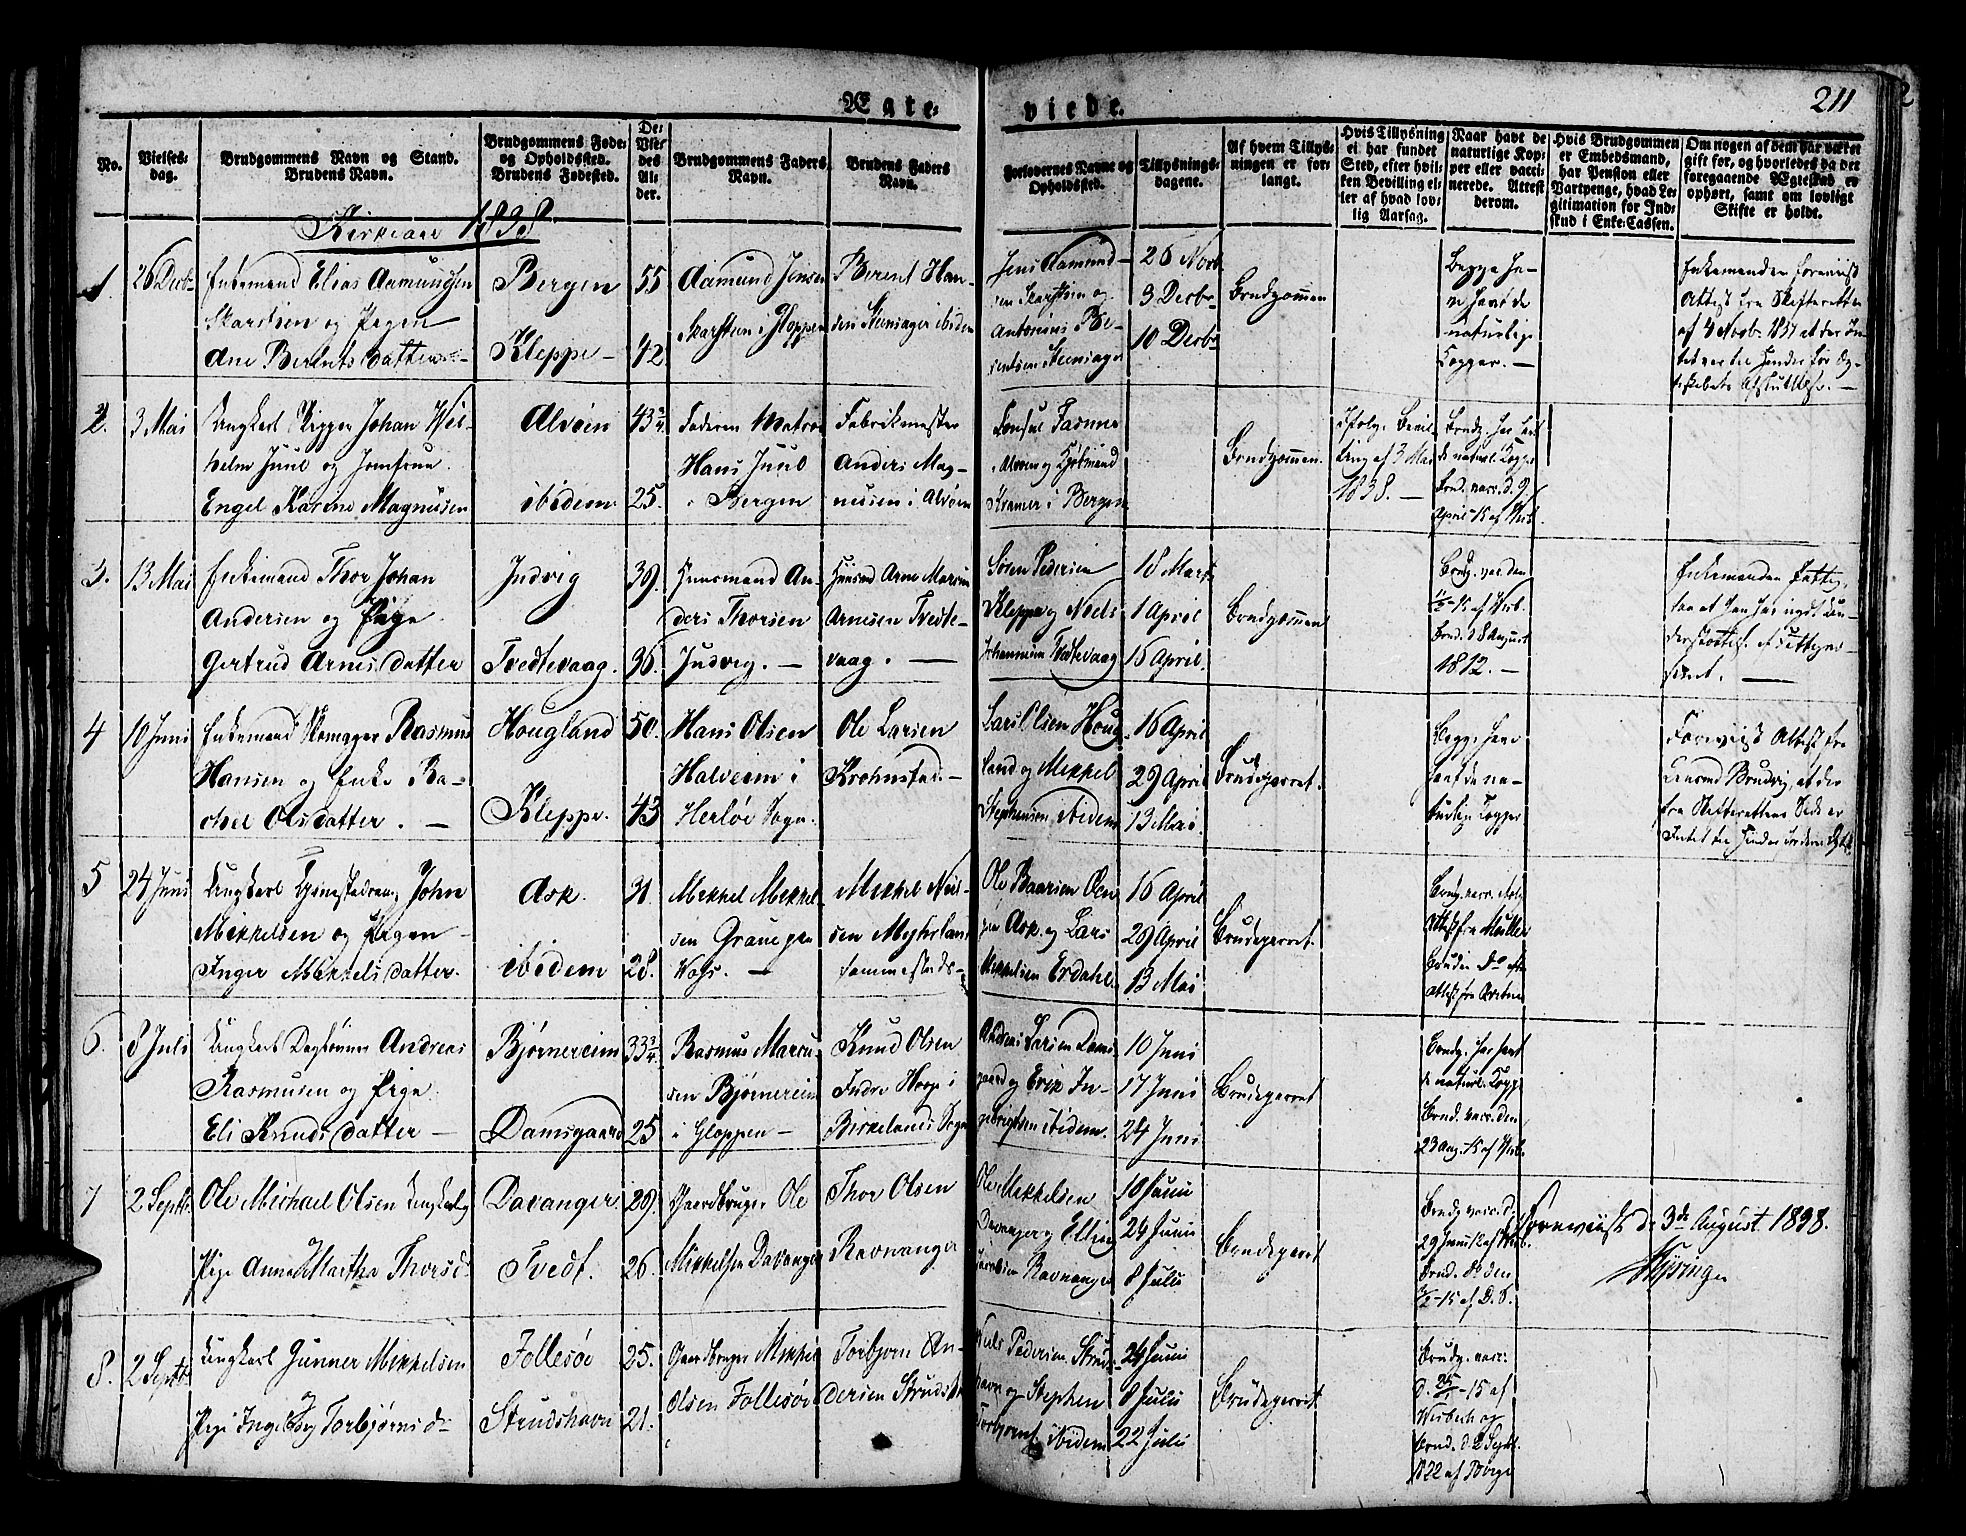 Ægte-
viede.
211
No.
Vielses-
dag.
Brudgommens Navn og Stand.
Brudens Navn.
Brudgommens Føde-
og Opholdssted.
Brudens Fødested.
De-
Vie-
des
Al-
der.
Brudgommens Faders
Navn.
Brudens Faders
Navn.
Forlovernes Navne og
Opholdssted.
Tillysnings-
dagene.
Af hvem Tillys-
ningen er for-
langt.
Hvis Tillysning
ei har fundet
Sted, efter hvil-
ken Bevilling el-
ler af hvad lov-
lig Aarsag.
Naar havt de
naturlige Kop-
per eller vacci-
nerede. Attest
derom.
Hvis Brudgommen
er Embedsmand,
har Pension eller
Vartpenge, hvad Le-
gitimation for Ind-
skud i Enke-Cassen.
Om nogen af dem har været
gift før, og hvorledes da det
foregaaende Ægteskab er
ophørt, samt om lovligt
Skifte er holdt.
Kirkeaar 1838.
1.
26 Decbr
Enkemand Elias Aamundsen
Skarstein og Pigen
Ane Berents datter
Bergen
Kleppe
55
42
Aamund Jensen
Skarstein i Gloppen
Berent Han-
sen Steensager ibidem
Jens Aamund-
sen Skarstein og
Antonius Be-
rentsen Steensager
26 Novb.
3 Decbr
10 Decbr
Brudgommen
Begge ha-
ve havt de
naturlige
Kopper.
Enkemanden foreviist
Attest fra Skifteretten
2.
3 Mai
Ungkarl Rigger Johan Wil-
helm Juul og Jomfrue
Engel Karine Magnusen
Alvøen
ibidem
43 3/4
25.
Faderen Matros
Hans Juul
i Bergen
Fabrikmester
Anders Mag-
nusen i Alvøen
Consul Fasmer
i Alvøen og Kjøbmand
Kramer i Bergen
Brudgommen.
Ifølge Bevil-
ling af 3 Mai
1838.
Brudg. har havt
de naturl. Kopper
Brud. vacc. d. 9
April 15 af Wisb.
3.
13 Mai
Enkemand Thor Johan
Andersen og Pige
Gertrud Arnes datter
Indvig
Tvedtevaag.
39.
36.
Huusmand An-
ders Thorsen
Indvig.
Huusmd Arne
Arnesen Tvedte-
vaag.
Søren Pedersen
Kleppe og Niels
Johannesen Tvedtevaag
18 Marts
1 April
16 April.
Brudgommen
Brudg. vac. den
15 af Wisb.
Brud. 18 August
1812.
4
10 Juni
Enkemand Skomager Rasmus
Hansen og Enke Ra-
chel Olsdatter.
Hougland
Kleppe.
50.
43
Hans Olsen
Halvesen i
Herløe Sogn.
Ole Larsen
Krohnstad.
Lars Olsen Houg
land og Mikkel
Stephensen ibidem
16 April
29 April
13 Mai.
Brudeparret.
Begge have
havt de na-
turlige Kopper
Foreviist Attest fra
5
24 Juni
Ungkarl Tjenestedreng John
Mikkelsen og Pigen
Inger Mikkels datter.
Ask.
ibidem
31.
28.
Mikkel Mikkel-
sen Graue paa
Vos.
Mikkel Niel-
sen Myhrland
sammesteds
Ole Baarsen Øen
paa Ask. og Lars
Mikkelsen Erdahl.
16 April
29 April
13 Mai
Brudeparret.
Brudg. vacc.
Attest fra Müller
Bruden Do efter
Attest fra
6.
8 Juli
Ungkarl Daglønner Andreas
Rasmusen og Pige
Eli Knuds datter
Bjørnereim
Damsgaard
33 3/4.
25
Rasmus Marcu-
sen Bjørnereim
i Gloppen
Knud Olsen
Indre Hope i
Birkelands Sogn
Andreas Larsen Dams
gaard og Erik In-
gebrigtsen ibidem.
10 Juni
17 Juni
24 Juni
Brudeparret
Brudg. har havt
de naturl. Kopp.
Brud. vacc. den
23 aug. 15 af Wisb.
7
2 Septb.
Ole Michael Olsen Ungkarl og
Pige Anna Martha Thorsd.
Davanger
Tvedt.
29.
26.
Gaardbruger Ole
Mikkelsen Davanger
Thor Olsen
Ravnanger
Ole Mikkelsen
Davanger og Elling
Ravnanger
10 Juni
24 Juni
8 Juli
Brudeparret
Brudg. vacc. d.
29 Juni 12 af Wisb.
Brud. do den
15 af D. S.
Foreviist d. 3de August 1838.
8.
2 Septb
Ungkarl Gunner Mikkelsen
Pige Ingeborg Torbjørns d.
Follesøe
Strudshavn
25.
21.
Gaardbruger Mikkel
Olsen Follesøe
Torbjørn An-
dersen Strudsh.
Niels Pedersen Struds-
havn og Stephen
Torbjørns. ibidem
24 Juni
8 Juli
22 Juli
Brudeparret
Brudg. vacc.
d. 15 af
Wisbech og
Brud. d. 2 Septb.
1822 af